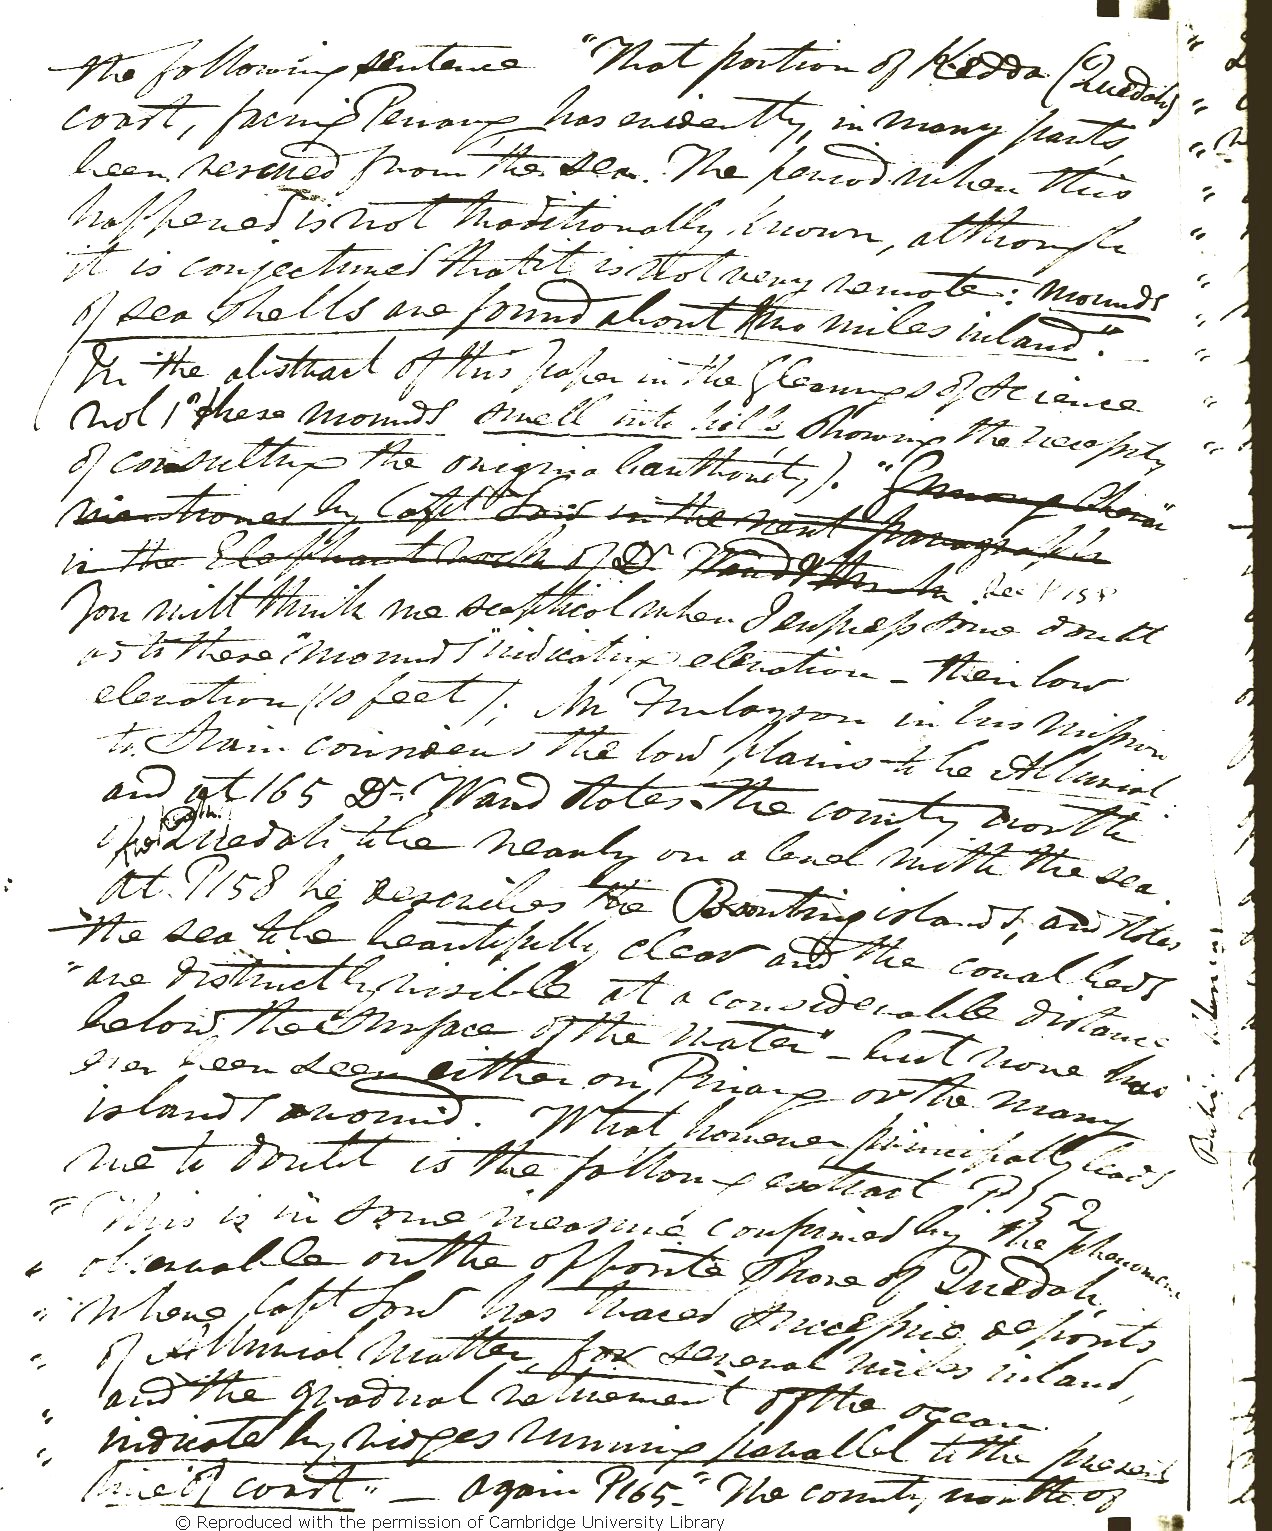 the following sentence "That portion of Kedda (Quedah)
coast, facing Penang has evidently, in many parts,
been rescued from the sea. The period when this
happened is not traditionally known, although
it is conjectured that it is not very remote: mounds
of sea shells are found about two miles inland".
(In the abstract of this paper in the Gleanings of Science
vol 1st these mounds swell into hills showing the necessity
of consulting the original authority). "
mentioned by Capt Low in the next paragraph is
in the Elephant rock of Dr Ward
You will think me sceptical when I express some doubt
as to these "mounds" indicating elevation – their low
elevation (10 feet); Mr Finlayson in his mission
to Siam considers the low plains to be Alluvial
and at 165 Dr Ward states the country north
of Quedah to be nearly on a level with the sea
at P158 he describes the Bounting islands, and states
the sea to be beautifully clear and the coral beds
"are distinctly visible at a considerable distance
below the surface of the water" – but none has
ever been seen either on Pinang or the many
islands around. What however principally leads
me to doubt is the following extract P.152
"This is in some measure confirmed by the phenomena
" observable on the opposite shore of Quedah,
" where Capt Low has traced successive deposits
" of Alluvial matter for several miles inland,
and the gradual retirement of the ocean
" indicated by ridges running parallel to the present
" line of coast" – again P165 – "The country north of
© Reproduced with the permission of Cambridge University Library